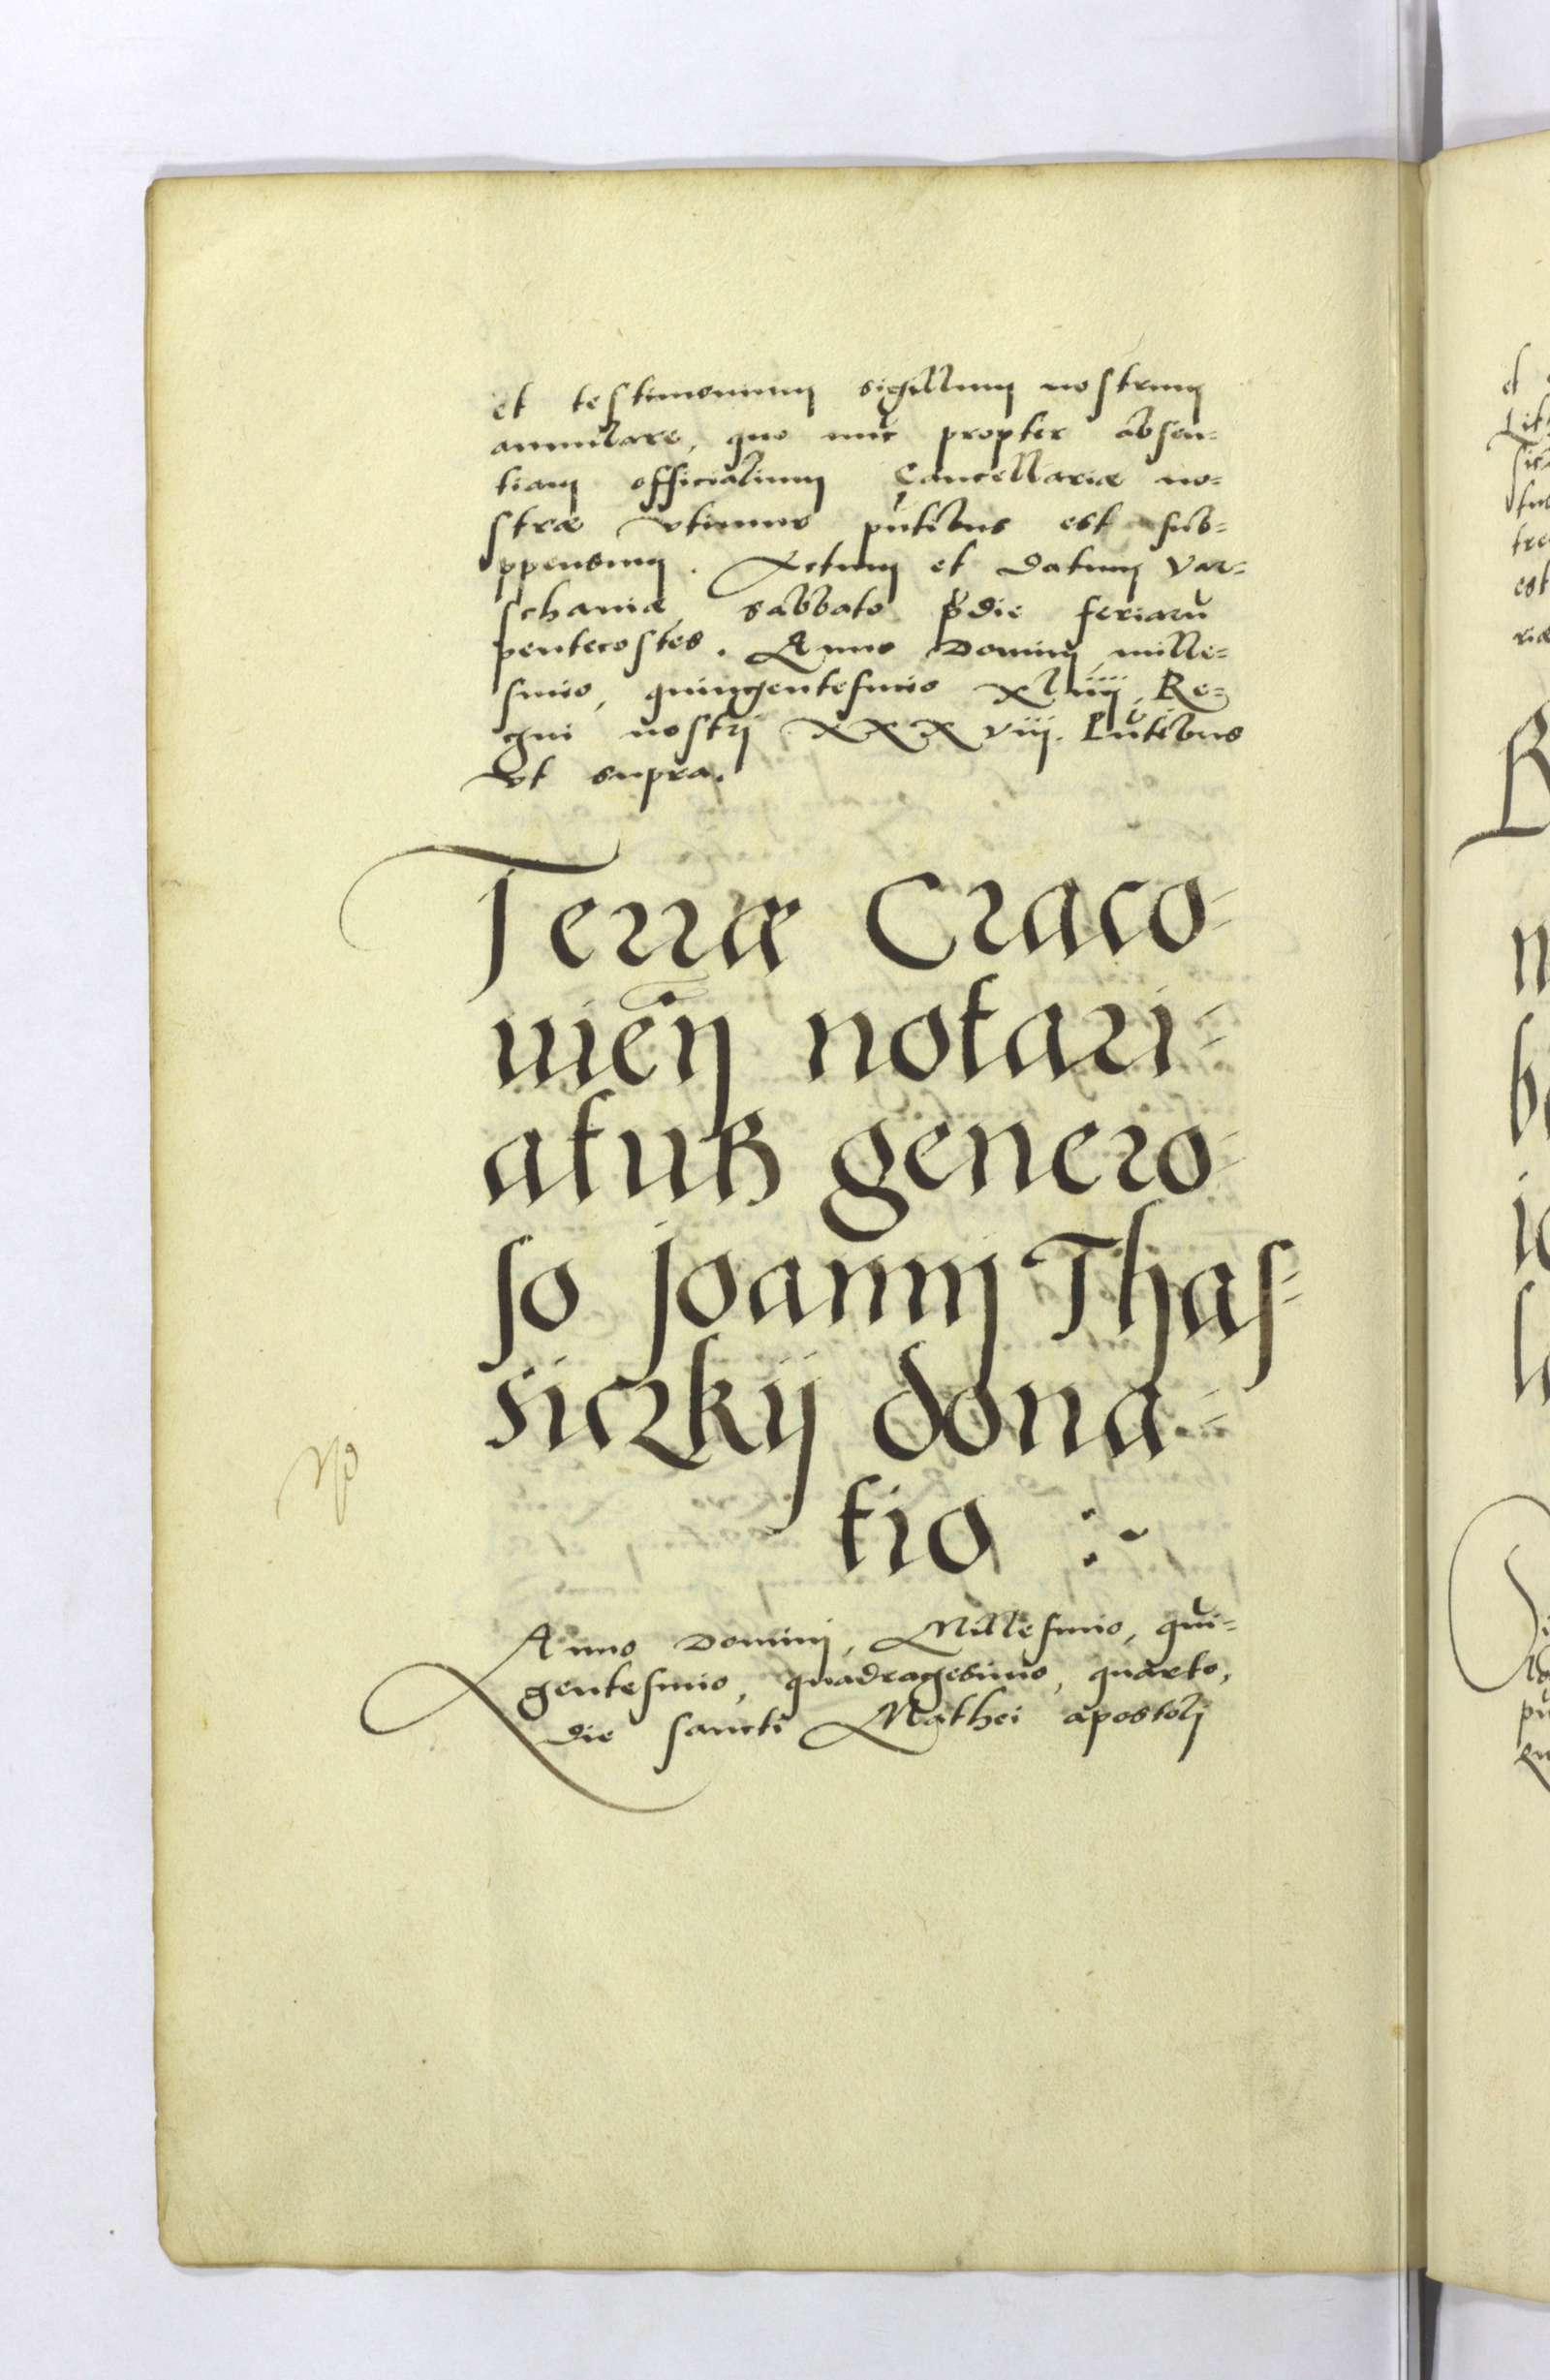 et testimonium sigillum nostrum
annulare, quo nūc propter absen=
tiam officialium Cancellariæ no=
stræ vtimur pn̄tibus est sub=
ppensum. Actum et Datum Var=
schaniæ sabbato p̄die feriarū
pentecostes. Anno Dominj mille=
simo, quingentesimo xliiij, Re=
gni nostrj xxxviij. Pn̄tibus
vt supra.
Terræ Craco=
uieñ notari=
atus genero=
so Joannj Thas=
siczkij dona=
tio :~
Anno Dominj, Millesimo, quī=
gentesimo, quadragesimo, quarto,
die sancti Mathei apostolj